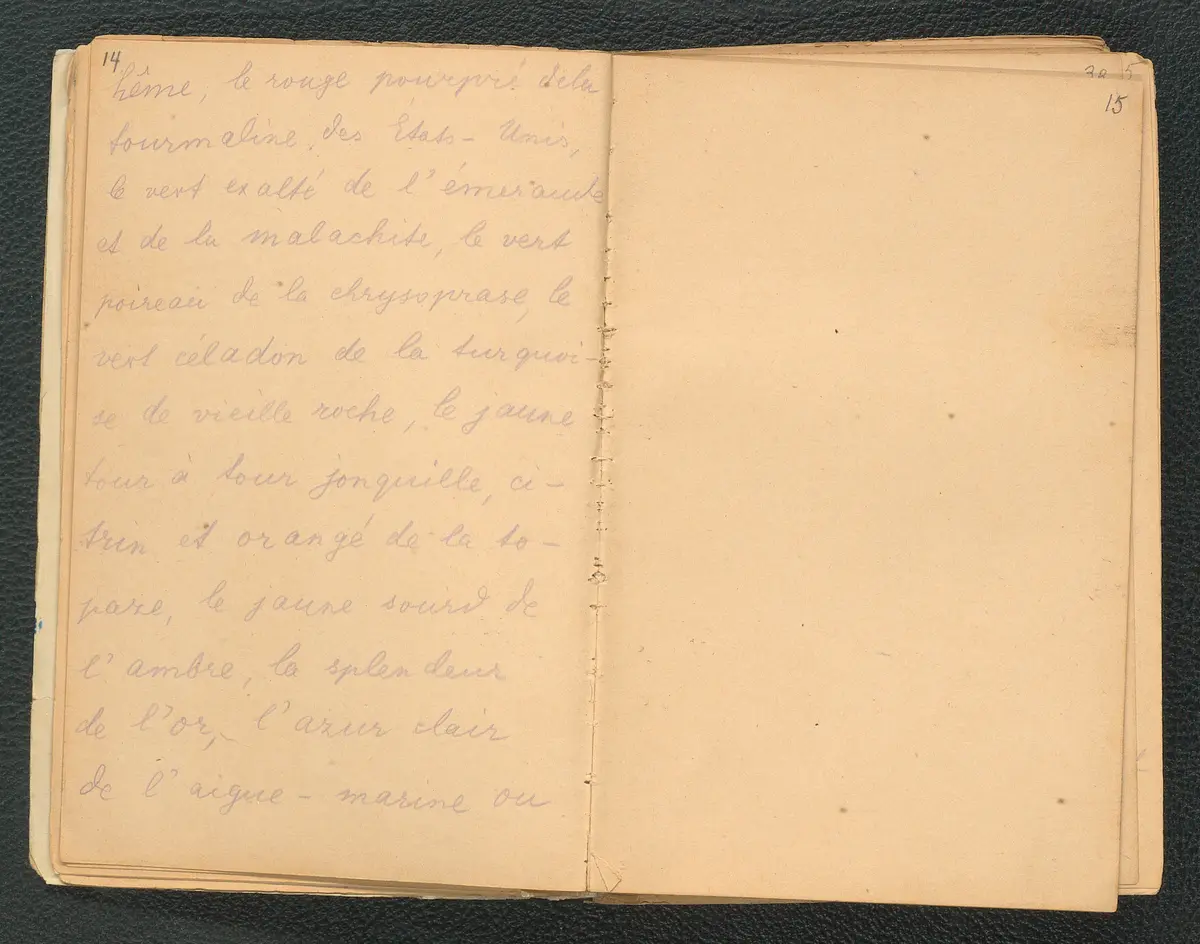 14
hême, le rouge pourpré dela
tourmaline des États-Unis,
le vert exalté de l'émeraude
et de la malachite, le vert
poireau de la chrysoprase, le
vert céladon de la turquoi-
se de vieille roche, le jaune
tour à tour jonquille, ci-
trin et orangé de la to-
paze, le jaune sourd de
l'ambre, la splendeur
de l'or, l'azur clair
de l'aigue-marine ou
15